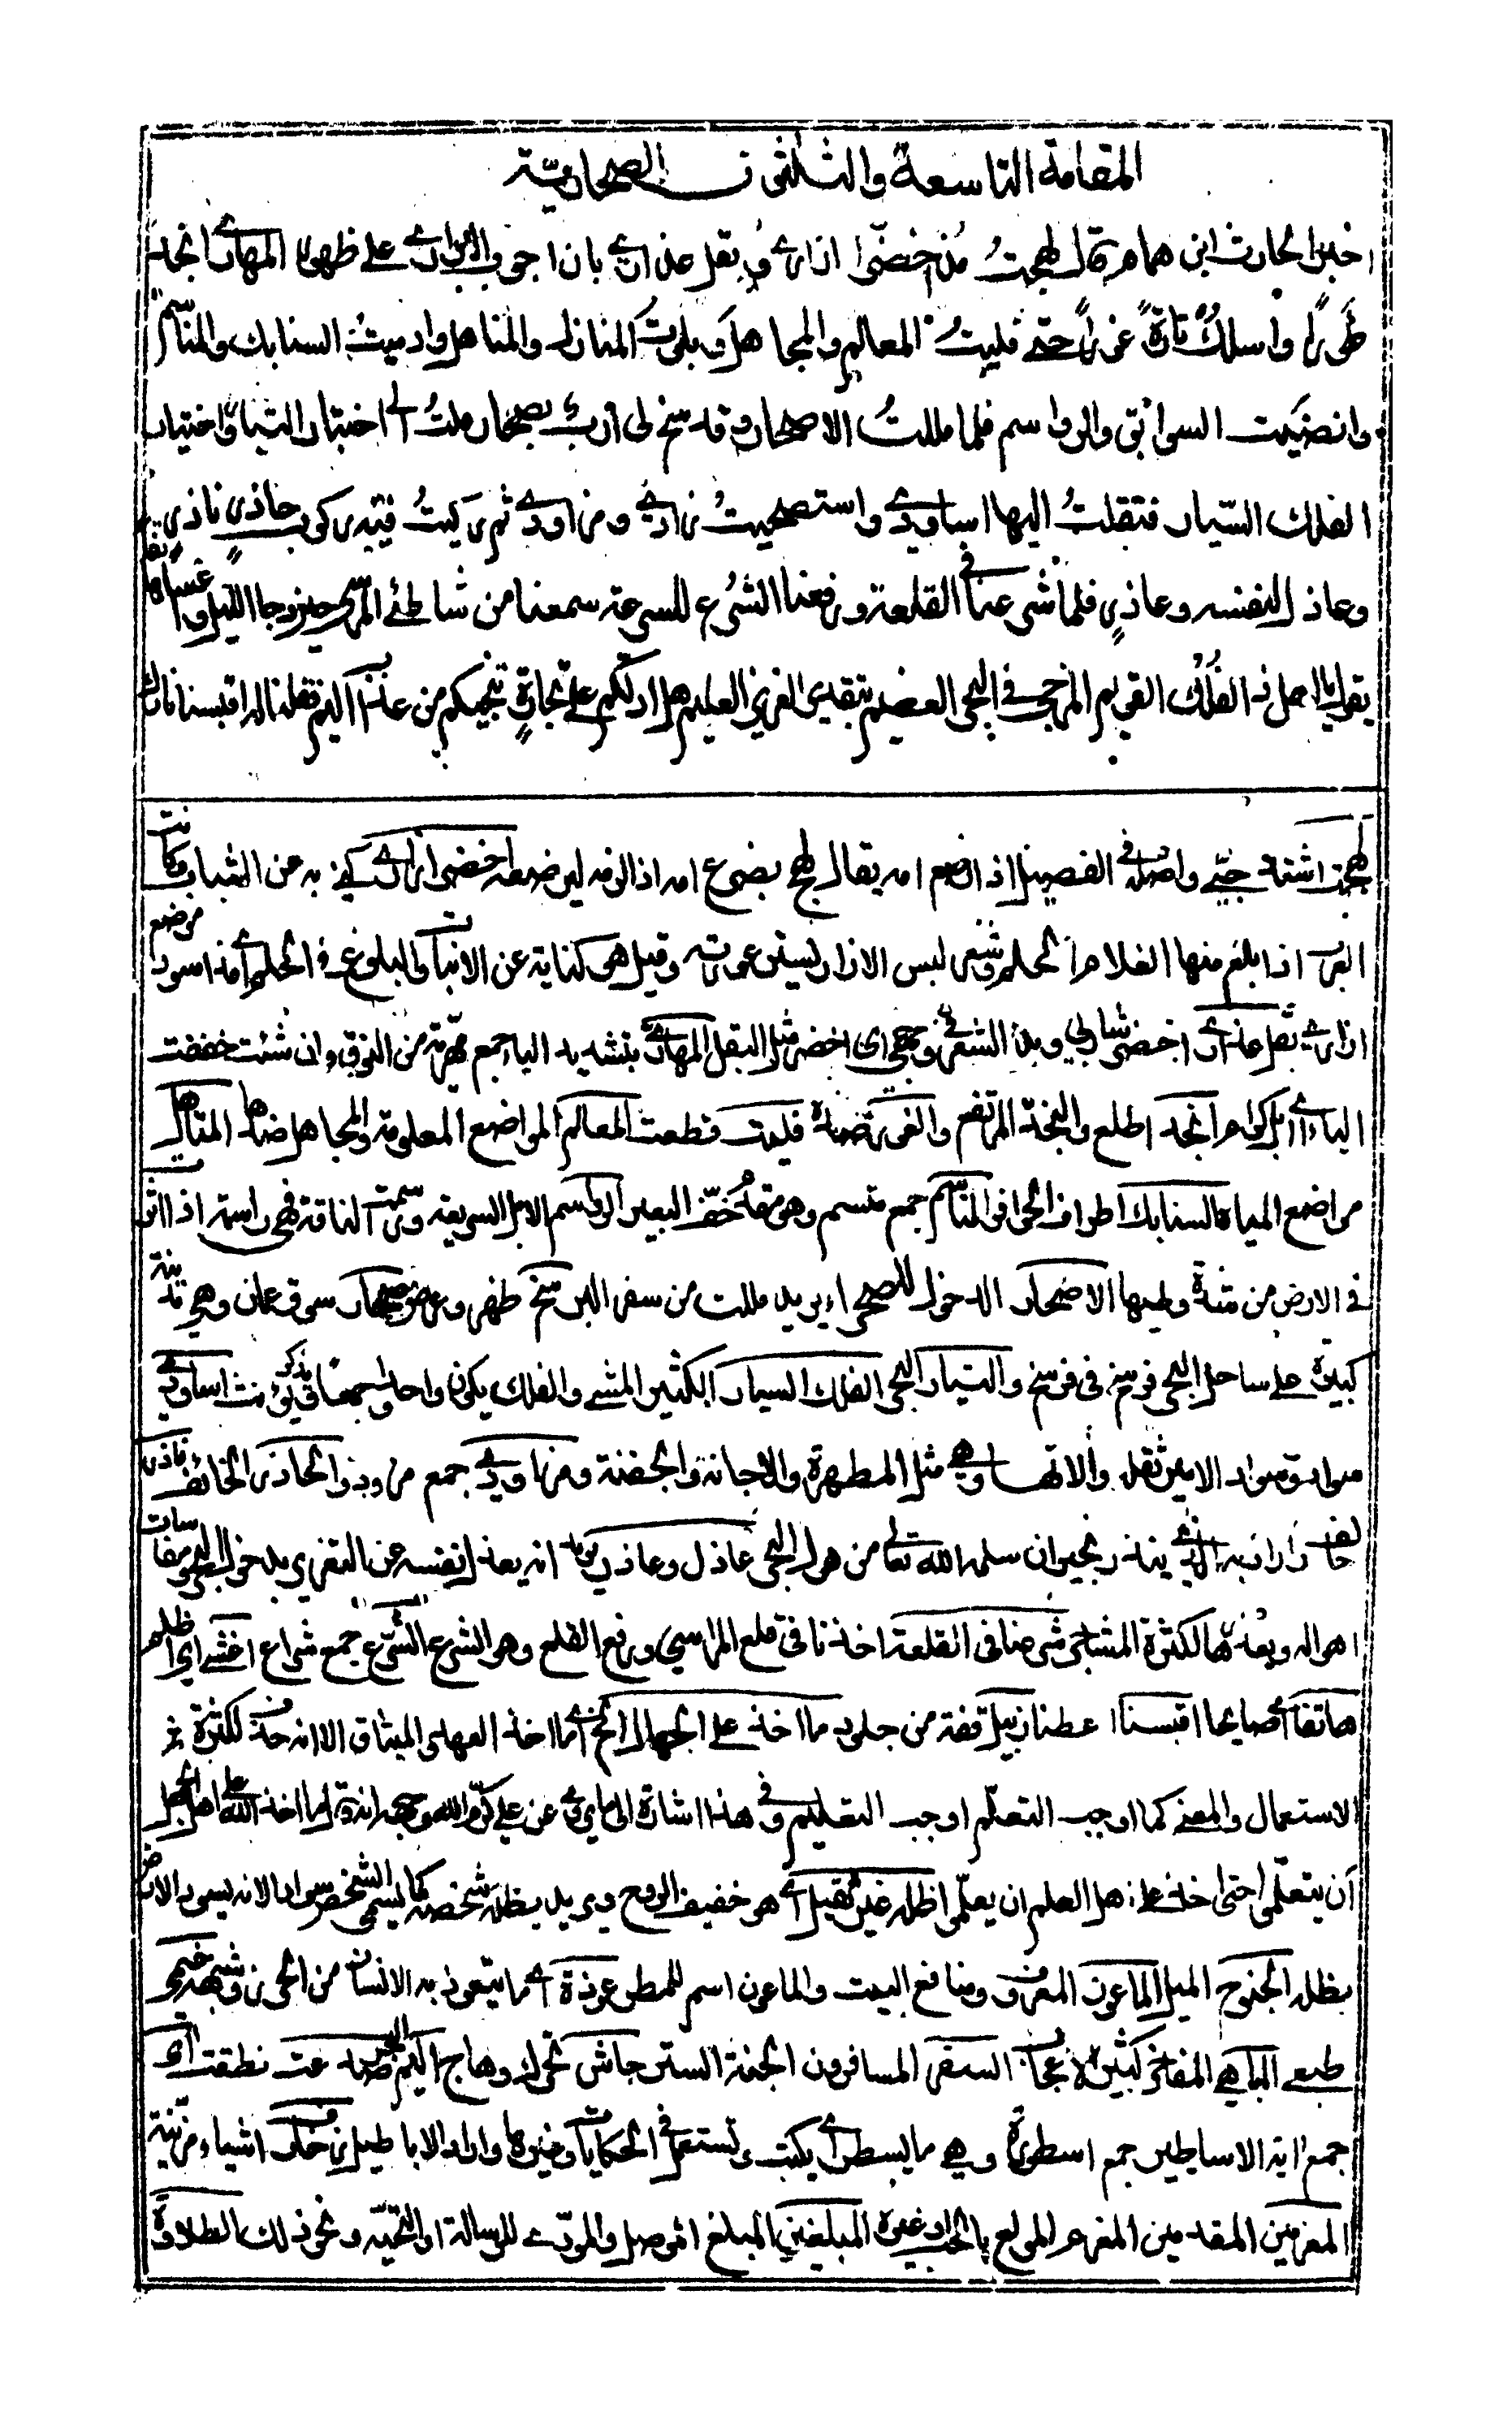 المقامة التاسعة والثلثون الصحارية
اخبر الحارث ابن همام قال لهجت مذ اخضر ازاري وبقل عذاري بان اجوب البراري على ظهور المهاري انجد
طورا واسلك تارة غورا حتى فليت المعالم والمجاهل وبلوت المنازل والمناهل وادميت السنابك والمناسم
وانضيت السوابق والرواسم فلما مللت الاصحار وقد سنح لي ارب بصحار ملت الى اختيار التيار واختيار
الفلك السيار فنقلت اليها اساودي واستصحبت زادي ومزاودي ثم ركبت فيه ركوب حاذر ناذر
وعاذل لنفسه وعاذر فلما شرعنا في القلعة ورفعنا الشرع للسرعة سمعنا من شاطئ المرسى حين دجا الليل واغسى هاتفا
يقول يا اهل ذا الفلك القويم المزجى في البحر العظيم بتقدير العزيز العليم هل ادلكم على تجارة تنجيكم من عذاب اليم فقلنا له اقبسنا نارك
لهجت اشتد حبي واصله في الفصيل اذا رضع امه يقال لهج بضرع امه اذا لزمه ليرضعه اخضر ازاري كنى به عن الشباب وكانت
العرب اذا بلغ منها الغلام الحلم وشعر لبس الازار ليستر عورته وقيل هو كناية عن الانبات والبلوغ الحلم اسود موضع
ازاري بقل عذاري اخضر شاربي وبدا الشعر في وجهي اي اخضر مثل البقل المهاري بتشديد الياء جمع مهرية من النوق وان شئت خففت
الياء ابل كرام انجد اطلع والنجد المرتفع والغور ضده فليت قطعت المعالم المواضع المعلومة والمجاهل ضدها المناهل
مواضع المياه السنابك اطراف الحوافر المناسم جمع منسم وهو مقدم خف البعير الرواسم الابل السريعة ورسمت الناقة فهي راسمة اذا اثرت
في الارض من شدة وطيها الاصحار الدخول للصحراء يريد مللت من سفر البر سنح ظهر وعرض صحار سوق عمان وهي مدينة
كبيرة على ساحل البحر فرسخ في فرسخ والتيار البحر الفلك السيار الكثير المشي والفلك يكون واحدا وجمعا يذكر ويؤنث اساودي
سواد الامير ثقله والالات وهي مثل المطهرة والاجانة والجفنة ومزاودي جمع مزود الحاذر الخائف ناذر
اراد به الذي ينذر بخير ان سلمه الله تعالى من هول البحر عاذل وعاذر يريد انه يعذل نفسه عن التغرير بدخول البحر ومقاسات
اهواله ويعذرها لكثرة شرعنا في القلعة اخذنا في قلع المراسي ورفع القلع وهو الشرع الشرع جمع شراع اغسى اي اظلم
هاتفا صايحا اقبسنا اعطنا من جلود ما اخذ على الجهال اي ما اخذ العهد والميثاق الا انه حذف لكثرة
الاستعمال والمعنى كما اوجب التعلم اوجب التعليم وفي هذا اشارة الى ما روي عن علي كرم الله وجهه انه قال ما اخذ الله على اهل الجهل
ان يتعلموا حتى اخذ على اهل العلم ان يعلموا ظله غير ثقيل اي هو خفيف الروح ويريد بظله شخصه كما يسمى الشخص سوادا لانه يسود الارض
بظله الجنوح الميل الماعون المعروف ومنافع البيت والماعون اسم للمطر عوذة اي ما يتعوذ به الانسان من الحزن وشبهه
طبعي المباهي المفاخر السفر المسافرون الجنة الستر جاش تحرك وهاج اليم البحر ضد نطقت اي
جمع اية الاساطير جمع اسطورة وهي ما يسطر اي يكتب وتستعمل في الحكايات وغيرها واراد الاباطيل زخارف اشياء مزينة
المغرمين المقدمين المغرم المولع المبلغين المبلغ الموصل والمودي للرسالة او التحية ونحو ذلك الطلاوة